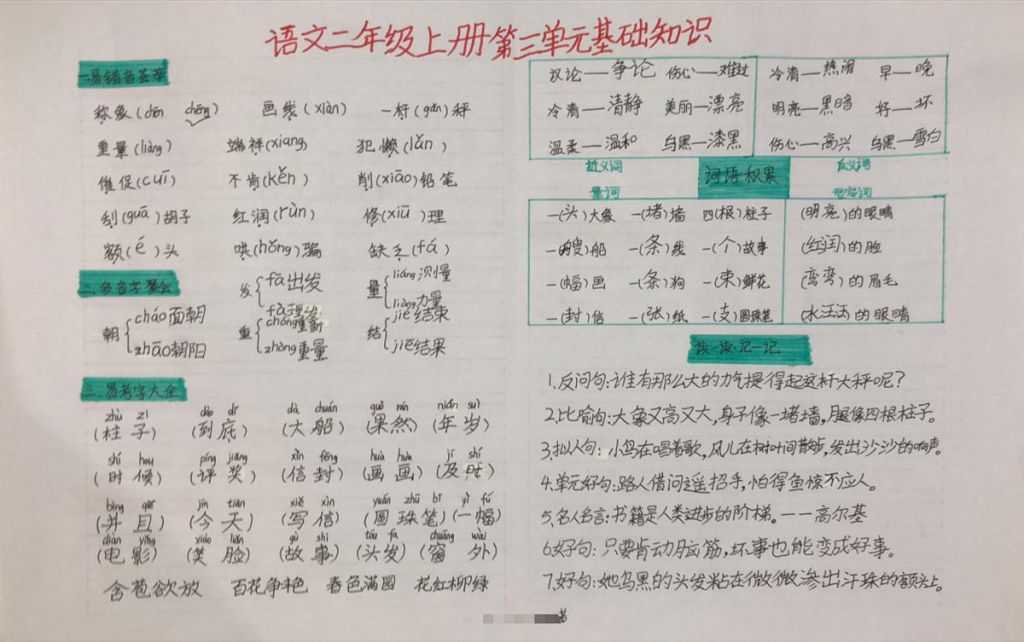 语文二年级上册第三单元基础知识
一.易错音荟萃
称象(chēn chēng) 画线(xiàn) 一杆(gǎn)秤
重量(liàng) 端祥(xiang) 犯懒(lǎn)
催促(cuī) 不肯(kěn) 削(xiāo)铅笔
刮(guā)胡子 红润(rùn) 修(xiū)理
额(é)头 哄(hǒng)骗 缺乏(fá)
二.多音字荟萃
朝 cháo面朝 zhāo朝阳
发 fā出发 fà理发
重 chóng重新 zhòng重量
量 liáng测量 liàng力量
结 jié结束 jiē结果
三.易考字大全
zhù zi dào dǐ dà chuán guǒ rán nián suì
(柱子) (到底) (大船) (果然) (年岁)
shí hou píng jiǎng xìn fēng huà huà jí shí
(时候) (评奖) (信封) (画画) (及时)
bìng qiě jīn tiān xiě xìn yuán zhū bǐ yì fú
(并且) (今天) (写信) (圆珠笔) (一幅)
diàn yǐng xiào liǎn gù shi tóu fa chuāng wài
(电影) (笑脸) (故事) (头发) (窗外)
含苞欲放 百花争艳 春色满园 花红柳绿
议论—争论 伤心—难过
冷清—清静 美丽—漂亮
温柔—温和 乌黑—漆黑
近义词
冷清—热闹 早—晚
明亮—黑暗 好—坏
伤心—高兴 乌黑—雪白
反义词
词语积累
量词
一(头)大象 一(堵)墙 四(根)柱子
一(艘)船 一(条)线 一(个)故事
一(幅)画 一(条)狗 一(束)鲜花
一(封)信 一(张)纸 一(支)圆珠笔
形容词
(明亮)的眼睛
(红润)的脸
(弯弯)的眉毛
(水汪汪)的眼睛
读一读.记一记
1.反问句:谁有那么大的力气提得起这杆大秤呢?
2.比喻句:大象又高又大,身子像一堵墙,腿像四根柱子。
3.拟人句:小鸟在唱着歌,风儿在树叶间散步,发出沙沙的响声。
4.单元好句:路人借问遥招手,怕得鱼惊不应人。
5.名人名言:书籍是人类进步的阶梯。——高尔基
6.好句:只要肯动脑筋,坏事也能变成好事。
7.好句:她乌黑的头发粘在微微渗出汗珠的额头上。